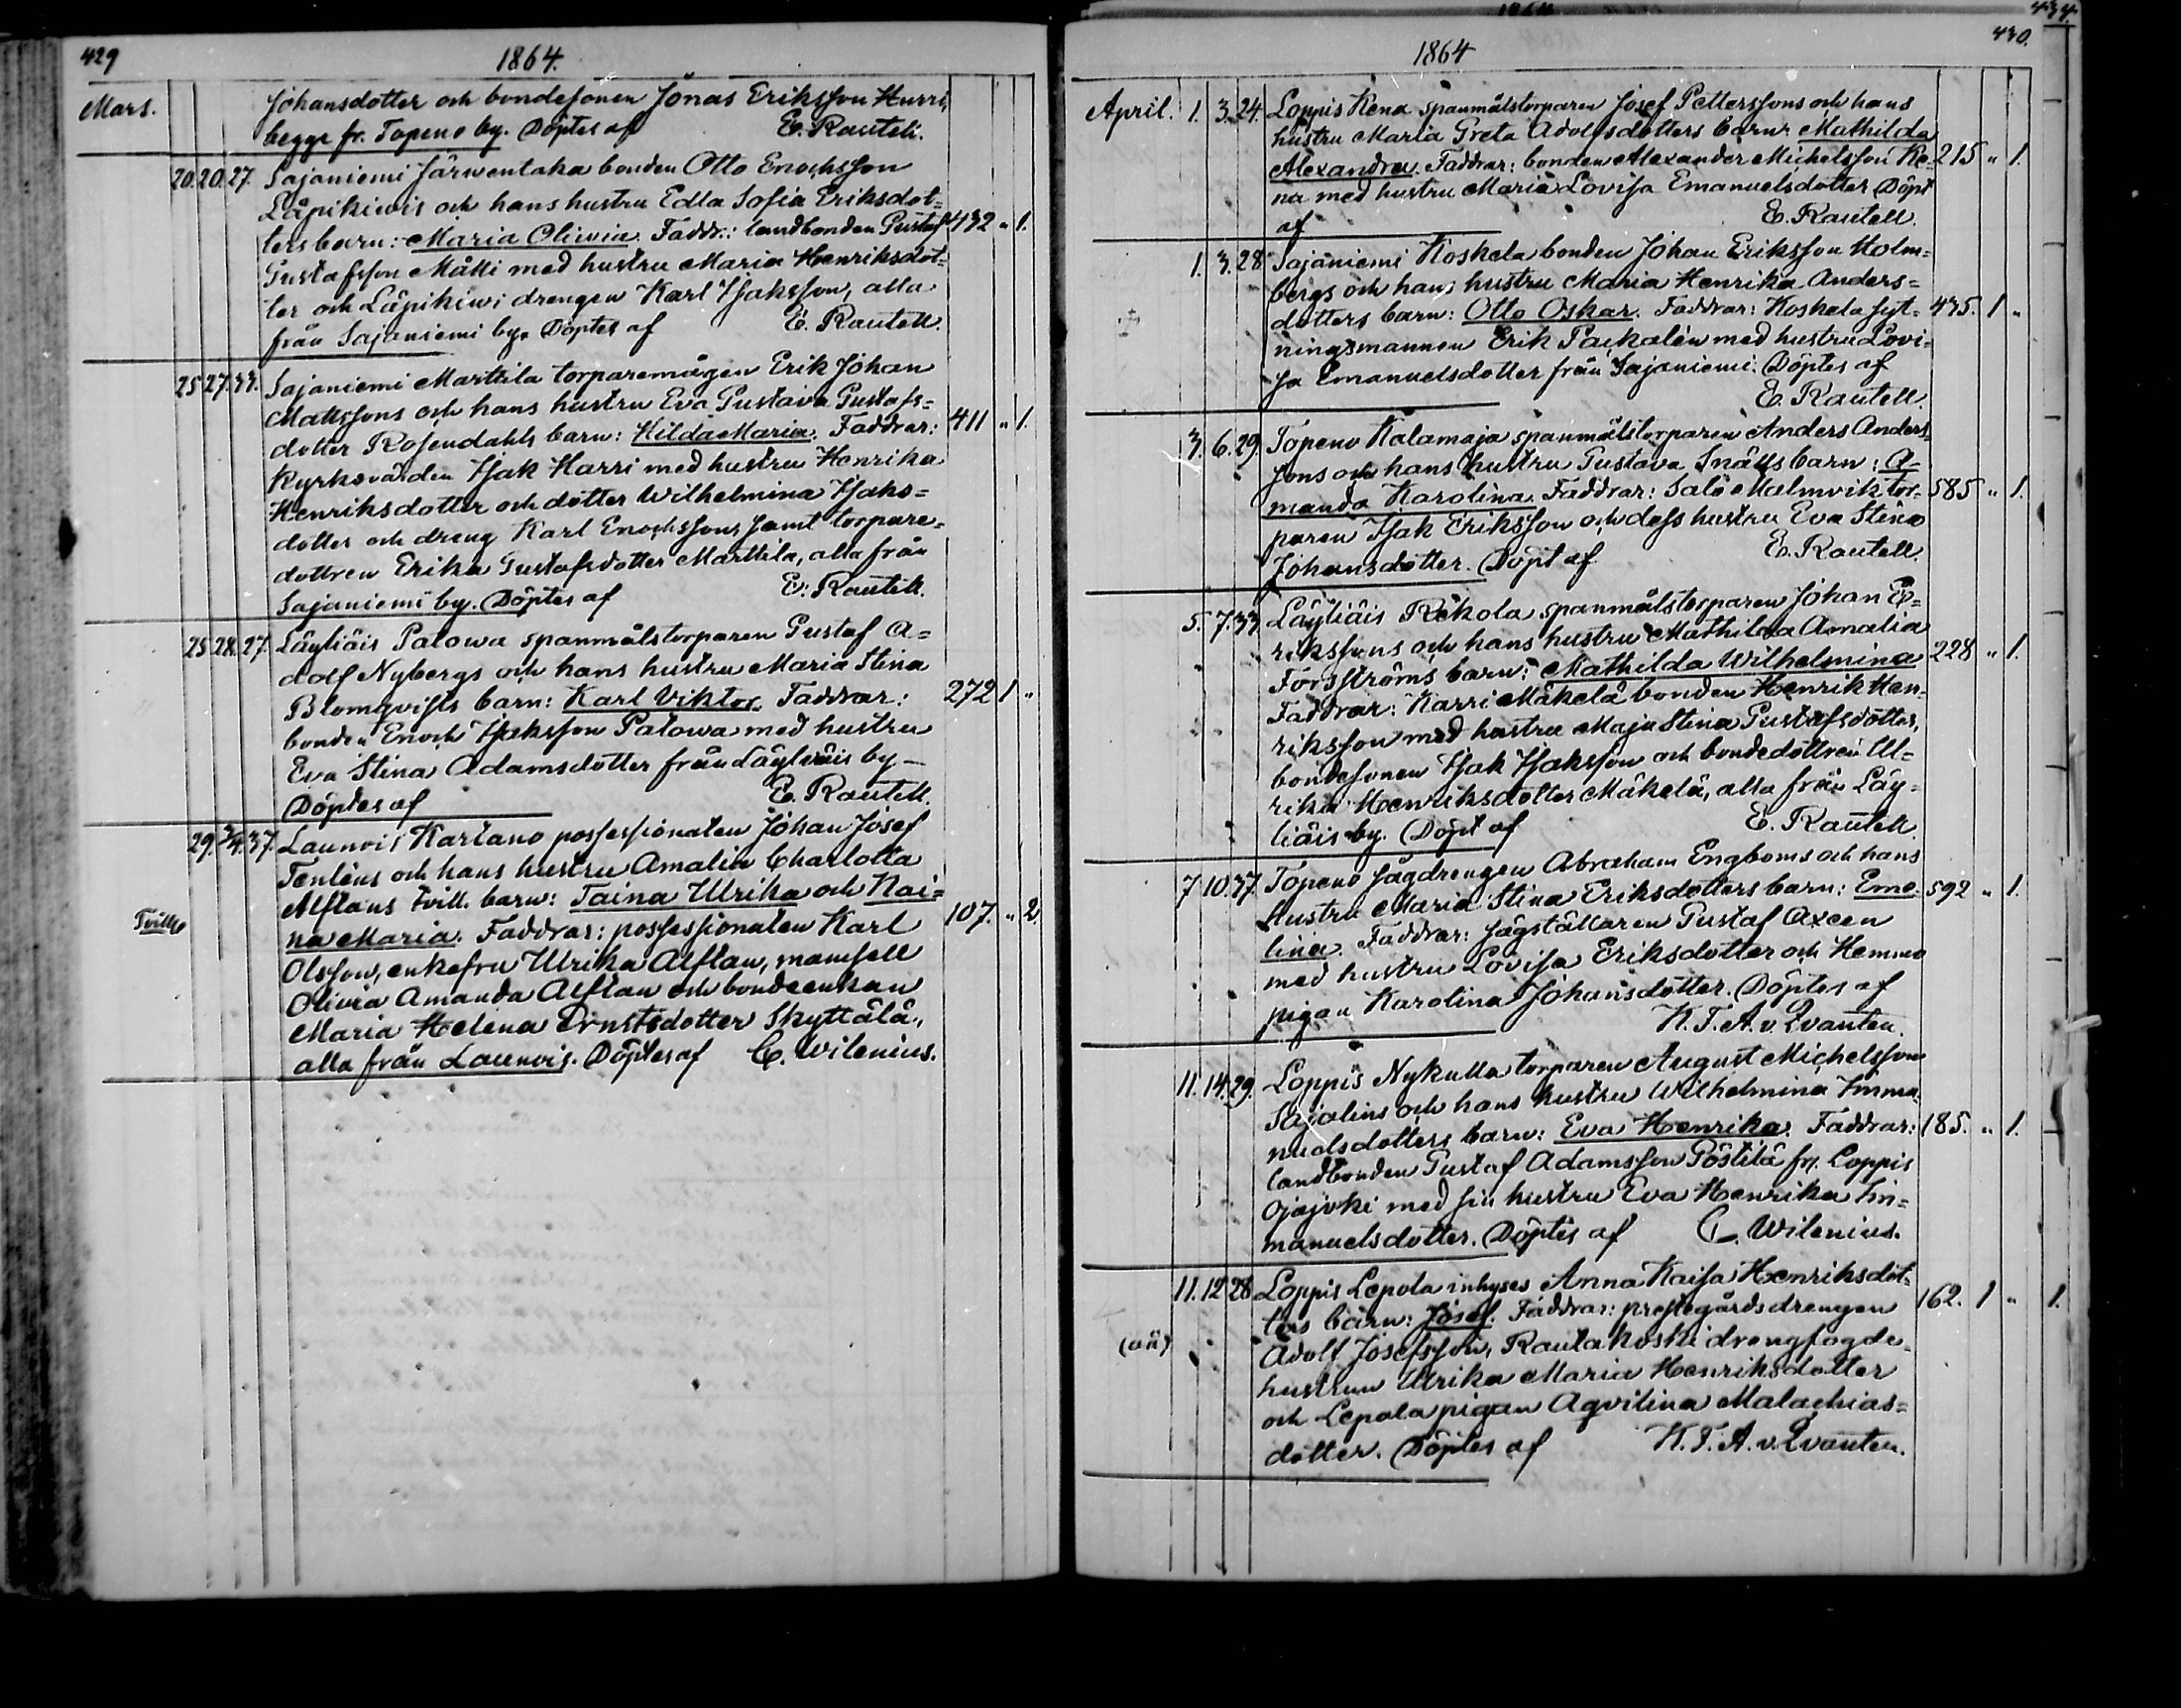 429
1864.
Mars.
Johansdotter och bondesonen Jonas Eriksson Hurri,
begge fr. Topeno by. Döptes af E. Rautell.
20. 20. 27. Sajaniemi Järwentaka bonden Otto Enochsson
Läpikiwis och hans hustru Edla Sofia Eriksdot-
ters barn: Maria Oliwia. Faddr.: landbonden Gustaf 432 " 1.
Gustafsson Mälli med hustru Maria Henriksdot-
ter och Läpikiwi drengen Karl Isaksson, alla
från Sajaniemi by. Döptes af E. Rautell.
25 27. 33. Sajaniemi Marttila torparemågen Erik Johan
Mattssons och hans hustru Eva Gustava Gustafs=
dotter Rosendahls barn: Hilda Maria. Faddrar: 411 " 1.
Kyrkovärden Isak Harri med hustru Henrika
Henriksdotter och dotter Wilhelmina Isaks=
dotter och dreng Karl Enochsson, samt torpare=
dottren Erika Gustafsdotter Marttila, alla från
Sajaniemi by. Döptes af E. Rautell.
25 28. 27. Läyliäis Palowa spanmålstorparen Gustaf A=
dolf Nybergs och hans hustru Maria Stina
Blomqvists barn: Karl Viktor. Faddrar: 272 1 "
bonden Enoch Isaksson Palowa med hustru
Eva Stina Adamsdotter från Läyliäis by —
Döptes af E. Rautell.
29. 3/4. 37. Launois Kartano possessionaten Johan Josef
Tenléns och hans hustru Amalia Charlotta
Alftans tvill. barn: Taina Ulrika och Nai=
Tvill.
na Maria. Faddrar: possessionaten Karl 107. " 2.
Olsson, enkefru Ulrika Alftan, mamsell
Olivia Amanda Alftan och bondeenkan
Maria Helena Ernstsdotter Skyttälä,
alla från Launois. Döptes af C. Wilenius.
434.
430.
1864
April. 1. 3. 24. Loppis Kena spanmålstorparen Josef Petterssons och hans
hustru Maria Greta Adolfsdotters barn: Mathilda
Alexandra. Faddrar: bonden Alexander Michelsson Ke- 215 " 1.
na med hustru Maria Lovisa Emanuelsdotter Döpt
af E. Rautell.
1. 3. 28. Sajaniemi Koskela bonden Johan Eriksson Holm=
bergs och hans hustru Maria Henrika Anders=
dotters barn: Otto Oskar. Faddrar: Koskela syt= 435. 1 "
ningsmannen Erik Packalén med hustru Lovi=
sa Emanuelsdotter från Sajaniemi. Döptes af
E. Rautell.
3. 6. 29. Topeno Kalamaja spanmålstorparen Anders Anders
sons och hans hustru Gustava Snälls barn: A-
manda Karolina. Faddrar: Salo Malmvik tor- 585 " 1.
paren Isak Eriksson och dess hustru Eva Stina
Johansdotter. Döpt af E. Rautell.
5. 7. 33 Läyliäis Rekola spanmålstorparen Johan E=
rikssons och hans hustru Mathilda Amalia
Forsströms barn: Mathilda Wilhelmina 228 " 1.
Faddrar: Karri Mäkelä bonden Henrik Hen-
riksson med hustru Maja Stina Gustafsdotter,
bondesonen Isak Isaksson och bondedottren Ul=
rika Henriksdotter Mäkelä, alla från Läy=
liäis by. Döpt af E. Rautell.
7 10. 37. Topeno sågdrengen Abraham Engboms och hans
hustru Maria Stina Eriksdotters barn: Eme- 592 " 1.
lina. Faddrar: sågställaren Gustaf Axeen
med hustru Lovisa Eriksdotter och Hemmo
pigan Karolina Johansdotter. Döptes af
K. T. A. v. Qvanten.
11. 14. 29. Loppis Nykulla torparen August Michelsson
Sajalins och hans hustru Wilhelmina Imma-
nuelsdotters barn: Eva Henrika. Faddrar: 185. " 1.
landbonden Gustaf Adamsson Pöstilä fr. Loppis
Ojajoki med sin hustru Eva Henrika Im=
manuelsdotter. Döptes af C. Wilenius.
11. 12 28 Loppis Lepola inhyses Anna Kaisa Henriksdot-
ters barn: Josef. Faddrar: prestegårdsdrengen 162. 1 " 1.
(oä)
Adolf Josefsson, Rautakoski drengfogde-
hustrun Ulrika Maria Henriksdotter
och Lepola pigan Aqvilina Malachias=
dotter. Döptes af K. T. A. v. Qvanten.